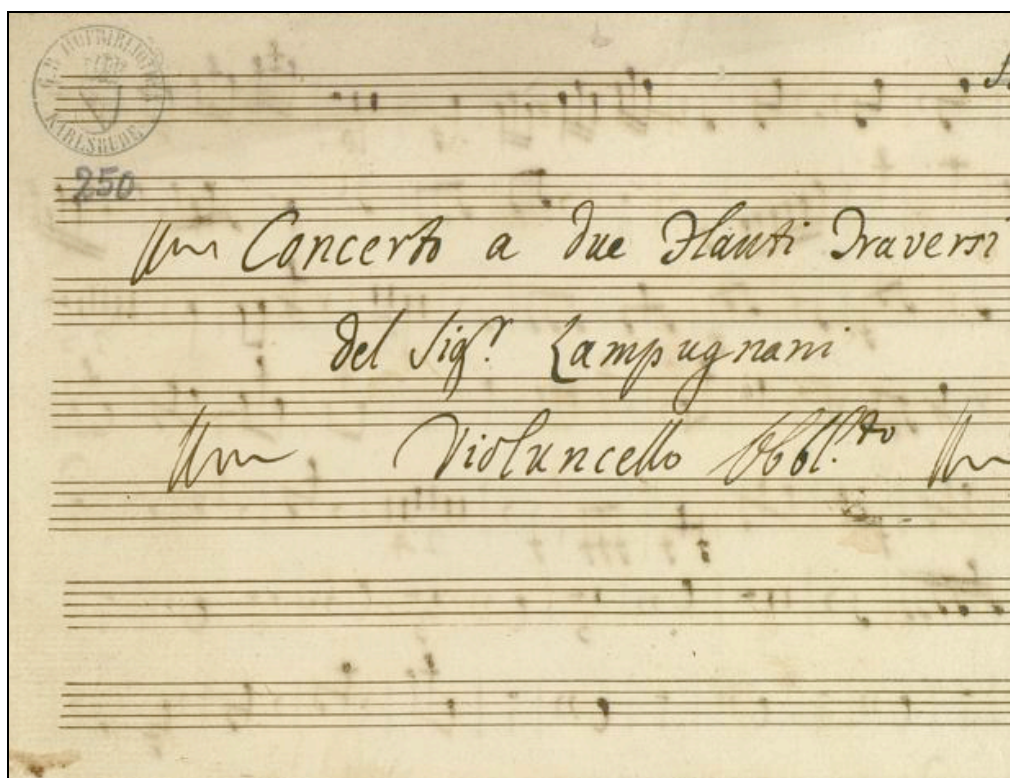 G. H. HOFBIBLIOTHEK
KARLSRUHE
250
Concerto a due Flauti Traversi
del Sig.r Lampugnani
Violuncello Obbl.to